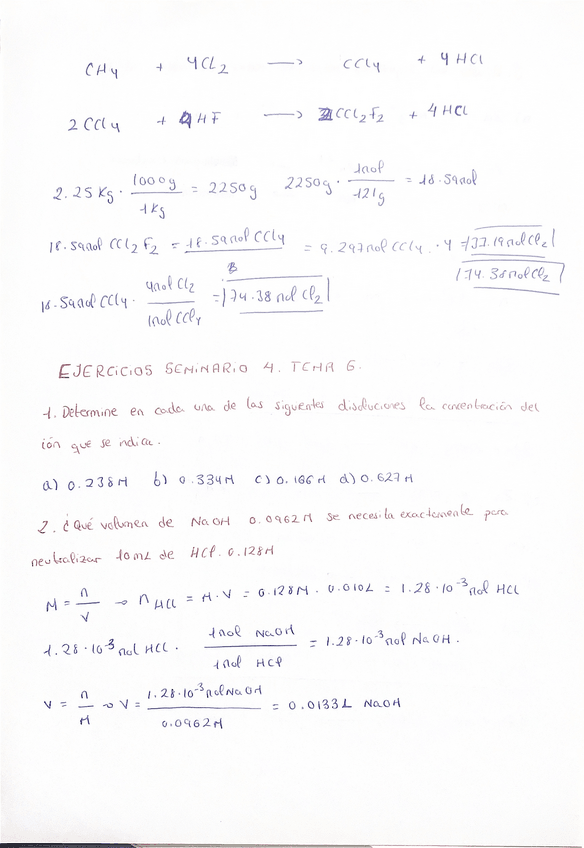 CH4 + 4Cl2 → CCl4 + 4HCl
2CCl4 + 4HF → 2CCl2F2 + 4HCl
2.25 Kg · 1000g / 1Kg = 2250g 2250g · 1mol / 121g = 18.59mol
18.59mol CCl2F2 = 18.59mol CCl4 = 9.297mol CCl4 · 4 =
74.38mol Cl2
18.59mol CCl4 · 4mol Cl2 / 1mol CCl4 = 74.38 mol Cl2
EJERCICIOS SEMINARIO 4. TEMA 6.
1. Determine en cada una de las siguentes disoluciones la concentración del
ión que se indica.
a) 0.238M b) 0.334M c) 0.166M d) 0.627M
2. ¿Qué volumen de NaOH 0.0962M se necesita exactamente para
neutralizar 10mL de HCl 0.128M
M = n / V → nHCl = M·V = 0.128M · 0.010L = 1.28·10-3 mol HCl
1.28·10-3 mol HCl · 1mol NaOH / 1mol HCl = 1.28·10-3 mol NaOH.
V = n / M → V = 1.28·10-3 mol NaOH / 0.0962M = 0.0133L NaOH